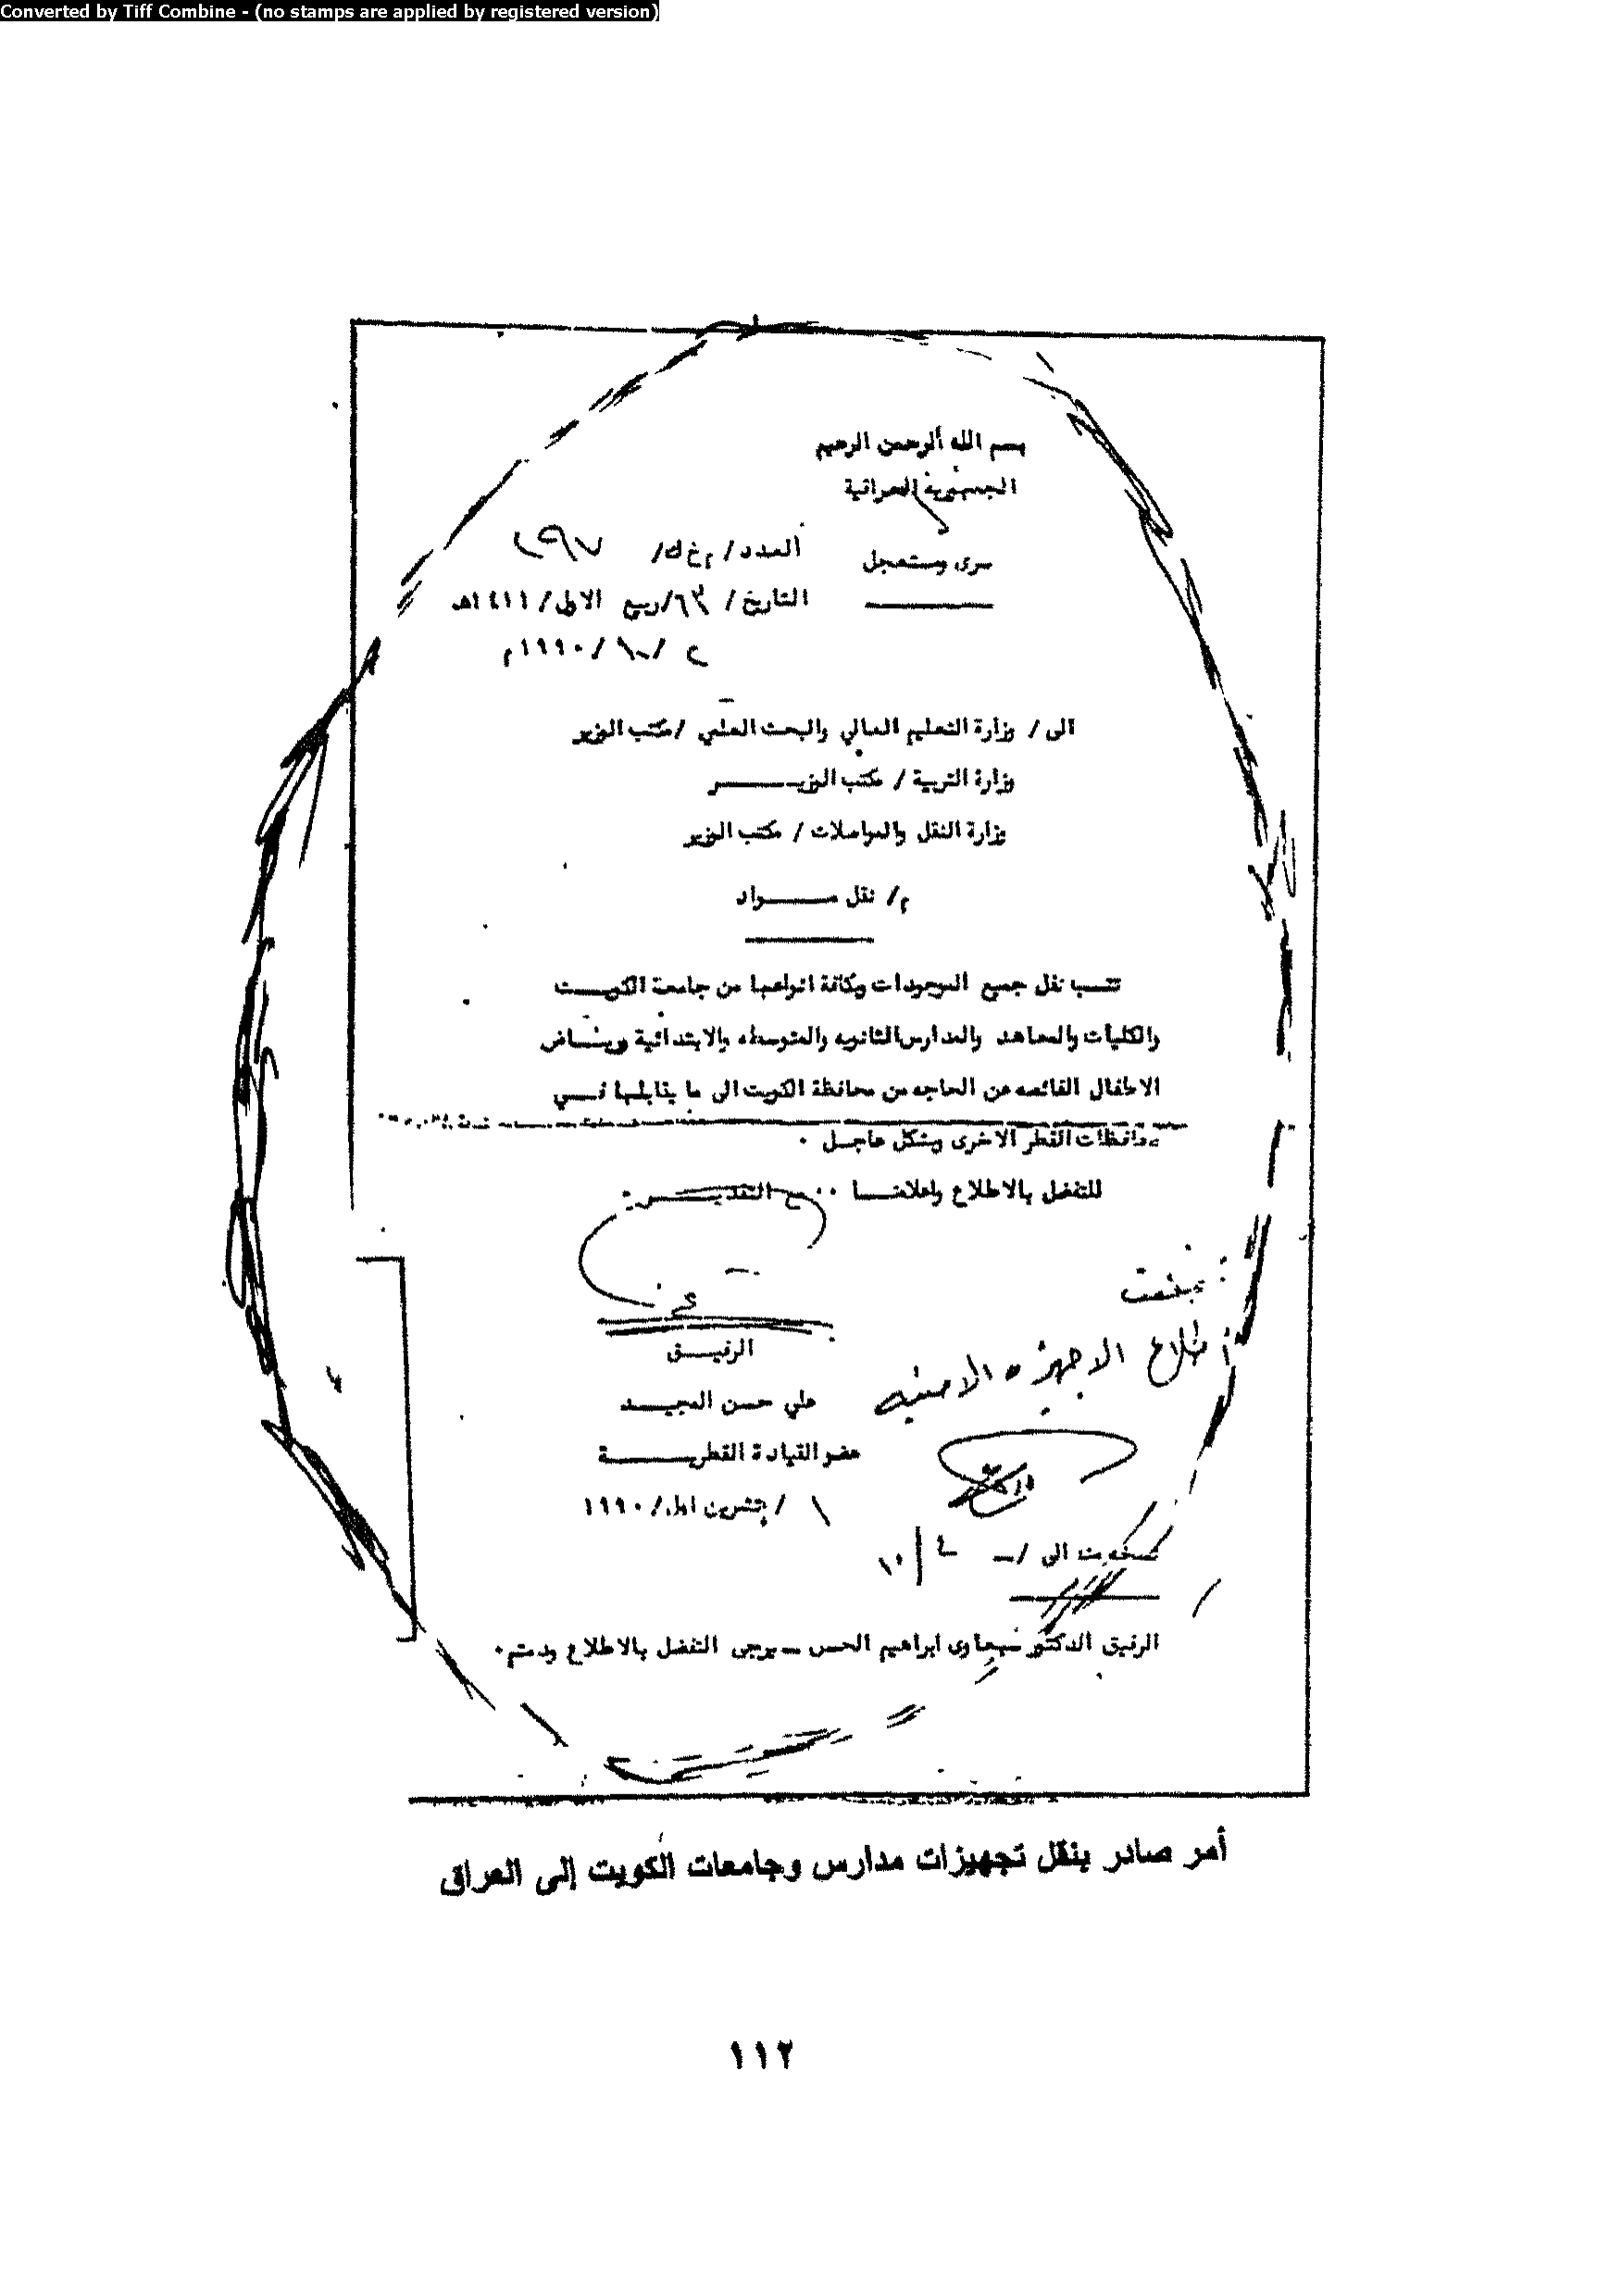 Converted by Tiff Combine - (no stamps are applied by registered version)
بسم الله الرحمن الرحيم
الجمهورية العراقية
سرى ومستعجل
العدد/ م خ ك/
التاريخ / /ربيع الاول/ ١٤١١هـ
/ /١٩٩٠م
الى / وزارة التعليم العالي والبحث العلمي /مكتب الوزير
وزارة التربية / مكتب الوزيـــــر
وزارة النقل والمواصلات / مكتب الوزير
م/ نقل مـــواد
تنسب نقل جميع الموجودات وبكافة انواعها من جامعة الكويـــت
والكليات والمعاهد والمدارس الثانويه والمتوسطه والابتدائية ورياض
الاطفال الفائضه عن الحاجه من محافظة الكويت الى ما يقابلها فـــي
محافظات القطر الاخرى وبشكل عاجـل ٠
للتفضل بالاطلاع واعلامنـــا ٠٠ مع التقديـــــر ٠
اطلاع الاجهزه الامنيه
الرفيـــق
علي حسن المجيـــد
عضو القيادة القطريـــــة
١ / تشرين اول/ ١٩٩٠
نسخه منه الى /ـ
٤/١٠
الرفيق الدكتور سبعاوى ابراهيم الحسن ـ يرجى التفضل بالاطلاع ودمتم٠
أمر صادر بنقل تجهيزات مدارس وجامعات الكويت إلى العراق
١١٢